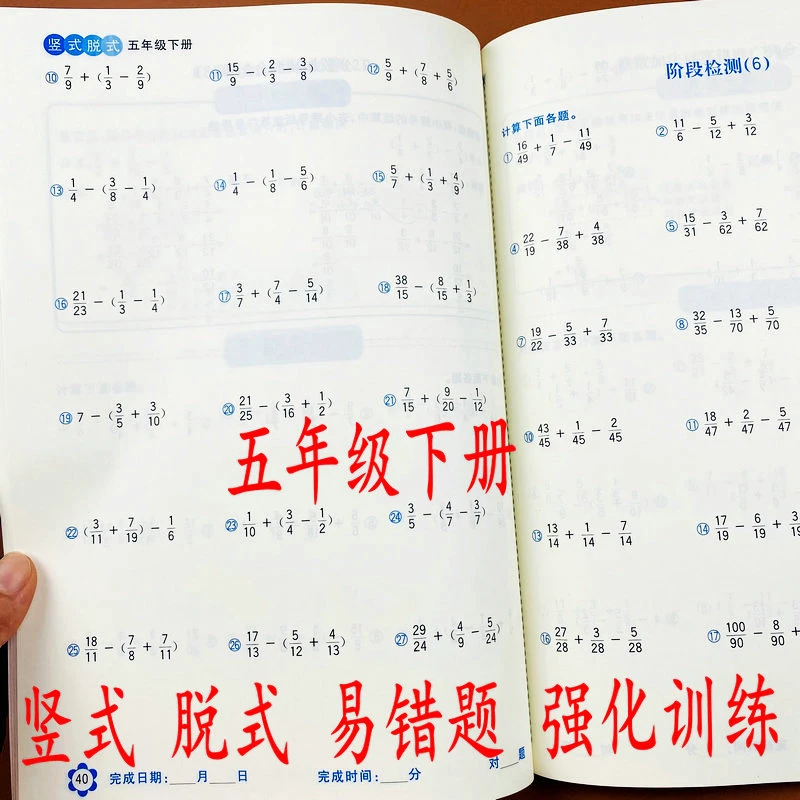 竖式脱式 五年级下册
⑩ 7/9 + (1/3 − 2/9) ⑪ 15/9 − (2/3 − 3/8) ⑫ 5/9 + (7/8 + 5/6)
⑬ 1/4 − (3/8 − 1/4) ⑭ 1/4 − (1/8 − 5/6) ⑮ 5/7 + (1/3 + 4/9)
⑯ 21/23 − (1/3 − 1/4) ⑰ 3/7 + (7/4 − 5/14) ⑱ 38/15 − (8/15 + 1/3)
⑲ 7 − (3/5 + 3/10) ⑳ 21/25 − (3/16 + 1/2) ㉑ 7/15 + (9/20 − 1/12)
五年级下册
㉒ (3/11 + 7/19) − 1/6 ㉓ 1/10 + (3/4 − 1/2) ㉔ 3/5 − (4/7 − 3/7)
㉕ 18/11 − (7/8 + 7/11) ㉖ 17/13 − (5/12 + 4/13) ㉗ 29/24 + (4/9 − 5/24)
竖式 脱式 易错题 强化训练
40 完成日期:___月___日 完成时间:___分 对___题
阶段检测(6)
计算下面各题。
① 16/49 + 1/7 − 11/49 ② 11/6 − 5/12 + 3/12
④ 22/19 − 7/38 + 4/38 ⑤ 15/31 − 3/62 + 7/62
⑦ 19/22 − 5/33 + 7/33 ⑧ 32/35 − 13/70 + 5/70
⑩ 43/45 + 1/45 − 2/45 ⑪ 18/47 + 2/47 − 5/47
⑬ 13/14 + 1/14 − 7/14 ⑭ 17/19 − 6/19 + 3/19
⑯ 27/28 + 3/28 − 5/28 ⑰ 100/90 − 8/90 +